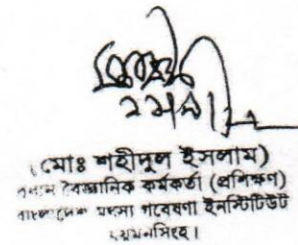 (মোঃ শহীদুল ইসলাম)
বৈজ্ঞানিক কর্মকর্তা (প্রশিক্ষণ)
বাংলাদেশ মৎস্য গবেষণা ইনস্টিটিউট
ময়মনসিংহ।